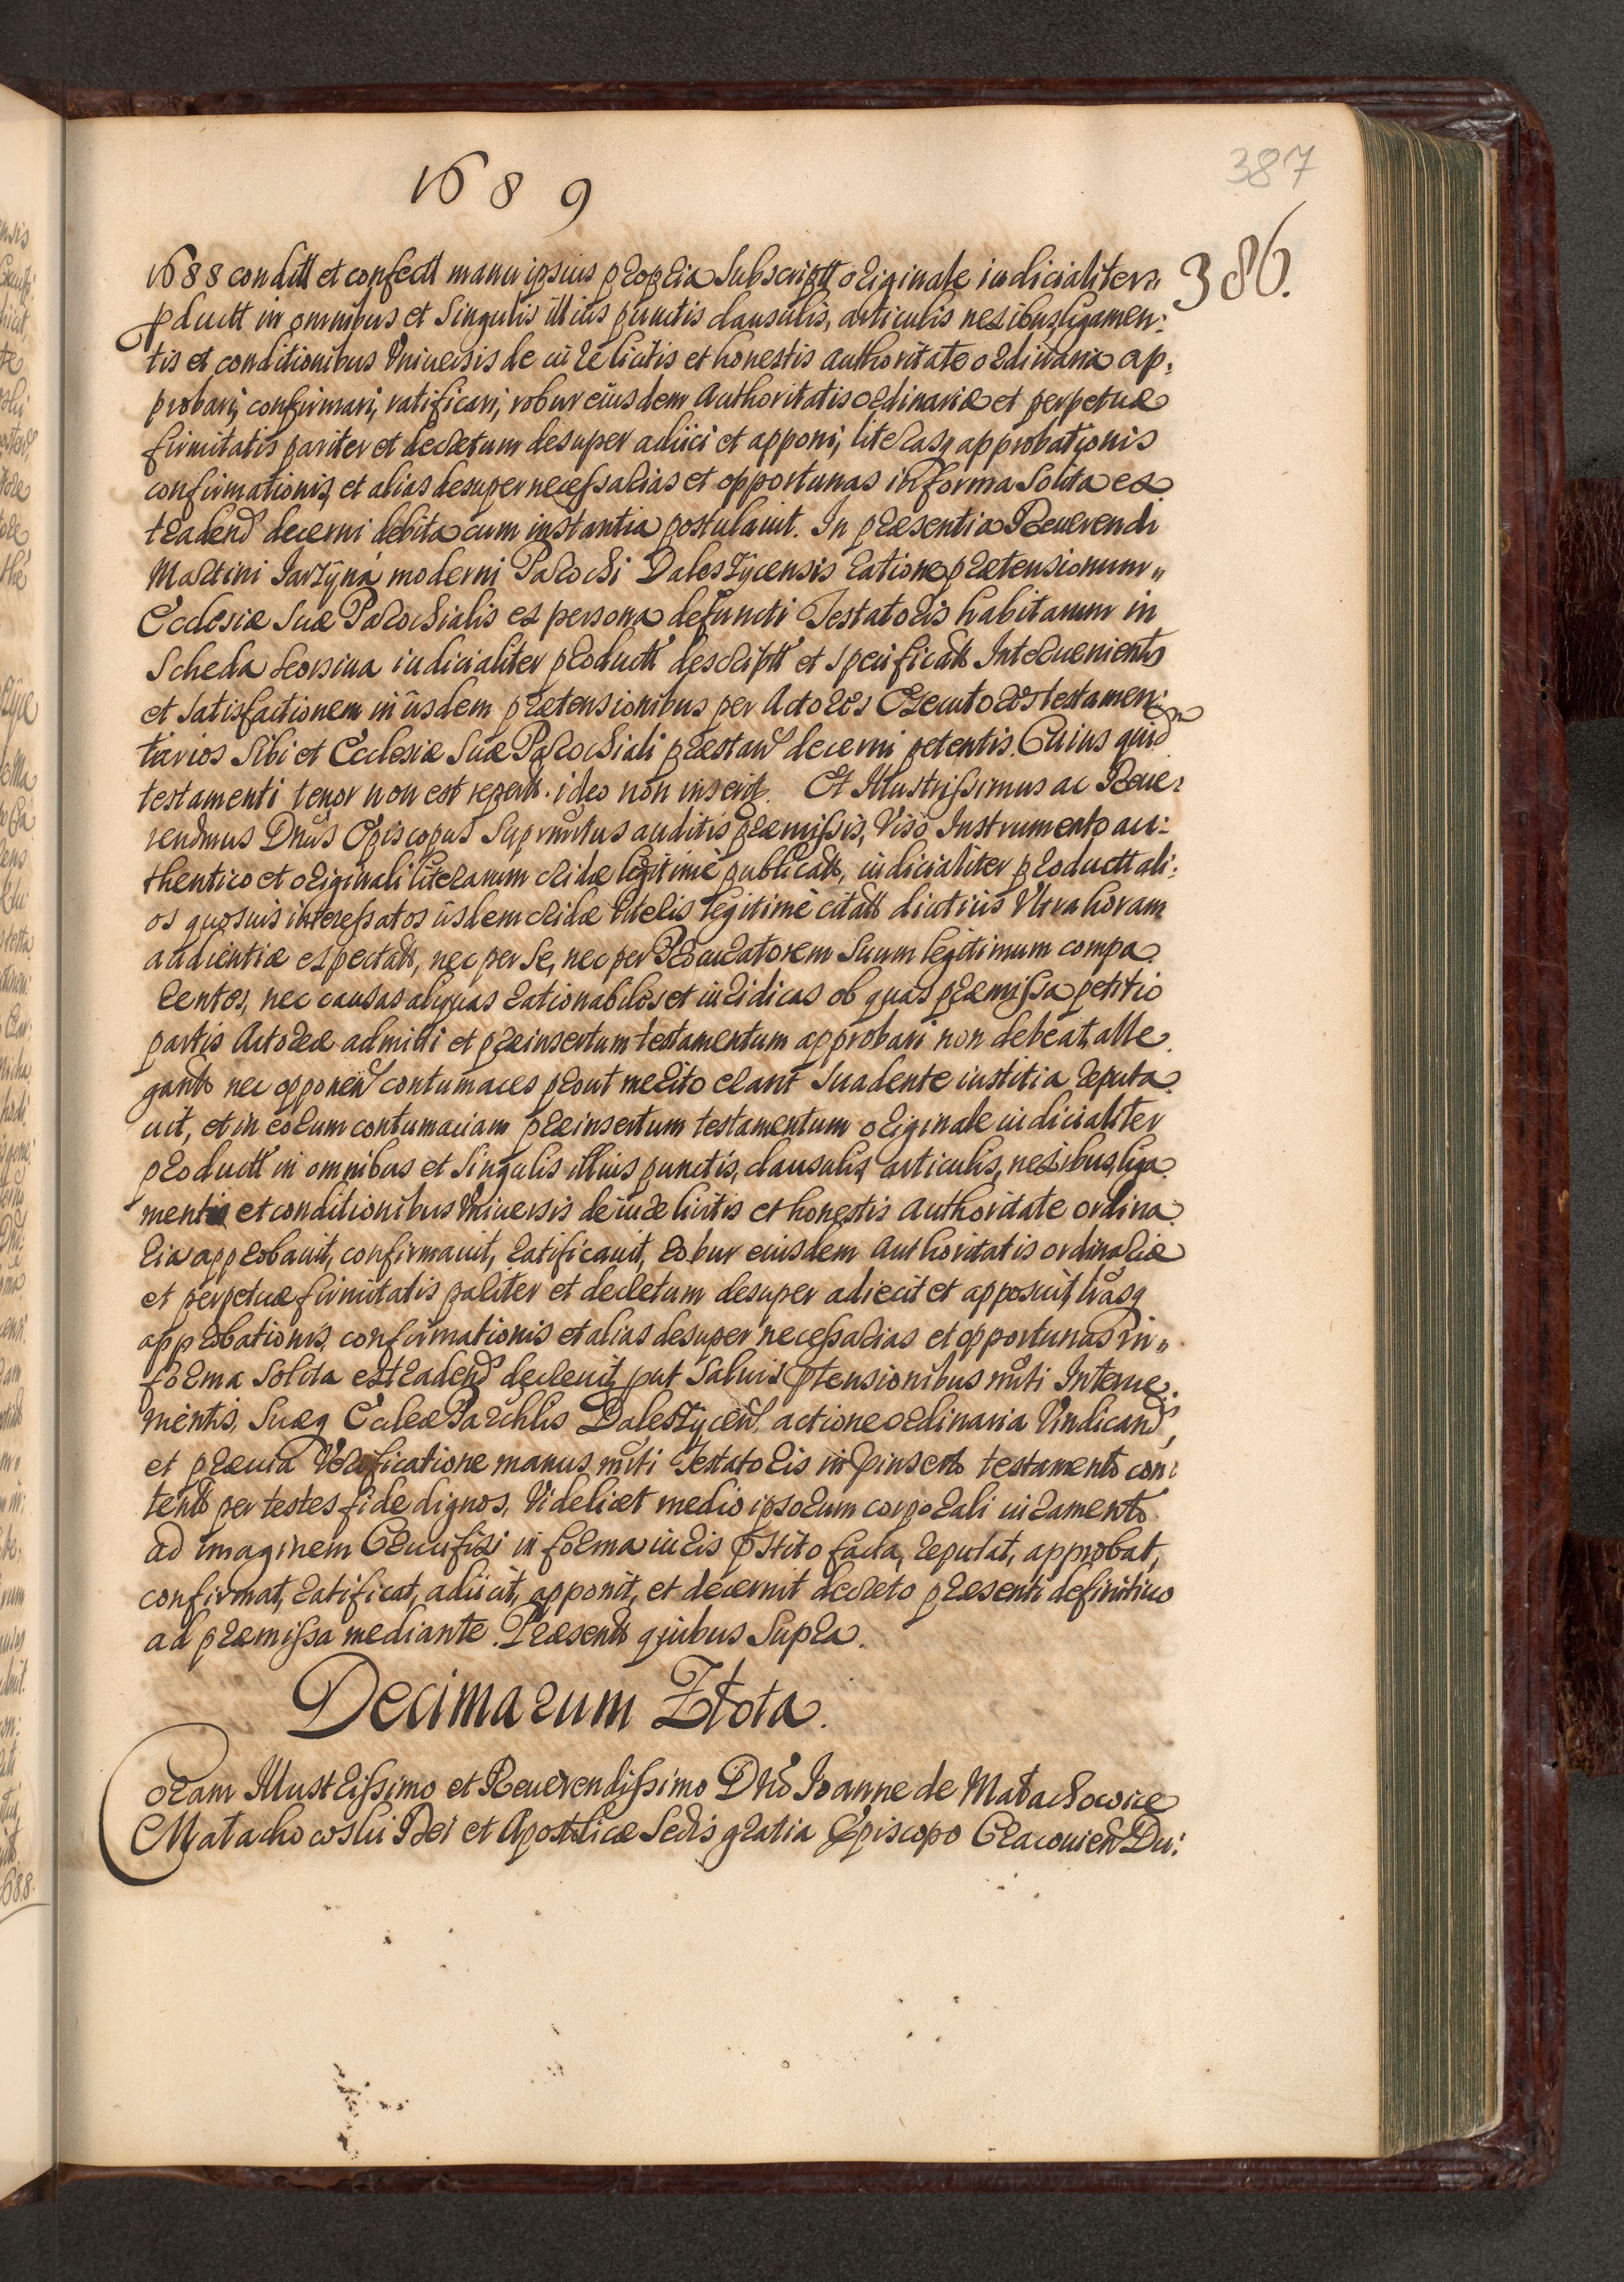 387
1689
386.
1688 conditt et confectt manu ipsius propria Subscriptt originale iudicialiter
pductt in omnibus et Singulis illius punctis clausulis, articulis nexibus, ligamen:
tis et conditionibus Vniuersis de iure licitis et honestis authoritate ordinaria ap:
probari, confirmari, ratificari, robur eiusdem Authoritatis ordinariæ et perpetuæ
firmitatis pariter et decretum desuper adiici et apponi, literasq approbationis
confirmationis, et alias desuper necessarias et opportunas in forma Solita ex
tradend decerni debita cum instantia postulauit. In præsentia Reuerendi
Martini Jarzÿna moderni Parochi Daleszÿcensis ratione prætensionum
Ecclesiæ Suæ Parochialis ex persona defuncti Testatoris habitarum in
Scheda Seorsiua iudicialiter productt descriptt et Specificatt Interuenientis
et Satisfactionem in iisdem prætensionibus per Actores Executores testamen:
tarios Sibi et Ecclesiæ Suæ Parochiali præstan decerni petentis. Cuius quid
testamenti tenor non est repertt. ideo non inserit. Et Illustrissimus ac Reue:
rendmus Dnus Episcopus Suprmtus auditis præmissis, Viso Instrumento au:
thentico et originali literarum cridæ legitimè publicatt, iudicialiter productt ali:
os quosuis interessatos iisdem cridæ literis legitimè citatt diutiùs Vltra horam
audientiæ expectatt, nec per Se, nec per Procuratorem Suum legitimum compa
rentes, nec causas aliquas rationabiles et iuridicas ob quas præmissa petitio
partis Actoreæ admitti et præinsertum testamentum approbari non debeat, alle
gantt nec opponen contumaces prout meritò erant Suadente iustitia reputa
uit, et in eorum contumaciam præinsertum testamentum originale iudicialiter
productt in omnibus et Singulis illius punctis, clausulis, articulis, nexibus, liga
mentis et conditionibus Vniuersis de iure licitis et honestis Authoritate ordina
ria approbauit, confirmauit, ratificauit, robur eiusdem Authoritatis ordinariæ
et perpetuæ firmitatis pariter et decretum desuper adiecit et apposuit, lrasq
approbationis, confirmationis et alias desuper necessarias et opportunas in
forma Solita extradend decreuit, put Saluis ptensionibus mti Interue
nientis, Suæq Eccleæ Parchlis Daleszÿcen, actione ordinaria Vindicand,
et præuia Verificatione manus mti Testatoris in pinserto testamento con:
tentt per testes fide dignos, Videlicet medio ipsorum corporali iuramento
ad imaginem Crucifixi in forma iuris pstito facta, reputat, approbat,
confirmat, ratificat, adiicit, apponit, et decernit decreto præsenti definitiuo
ad præmissa mediante. Præsentt quibus Supra.
Decimarum Złota.
Coram Illustrissimo et Reuerendissimo Dno Joanne de Małachowice
Małachowski Dei et Apostlicæ Sedis gratia Episcopo Cracouien Du: